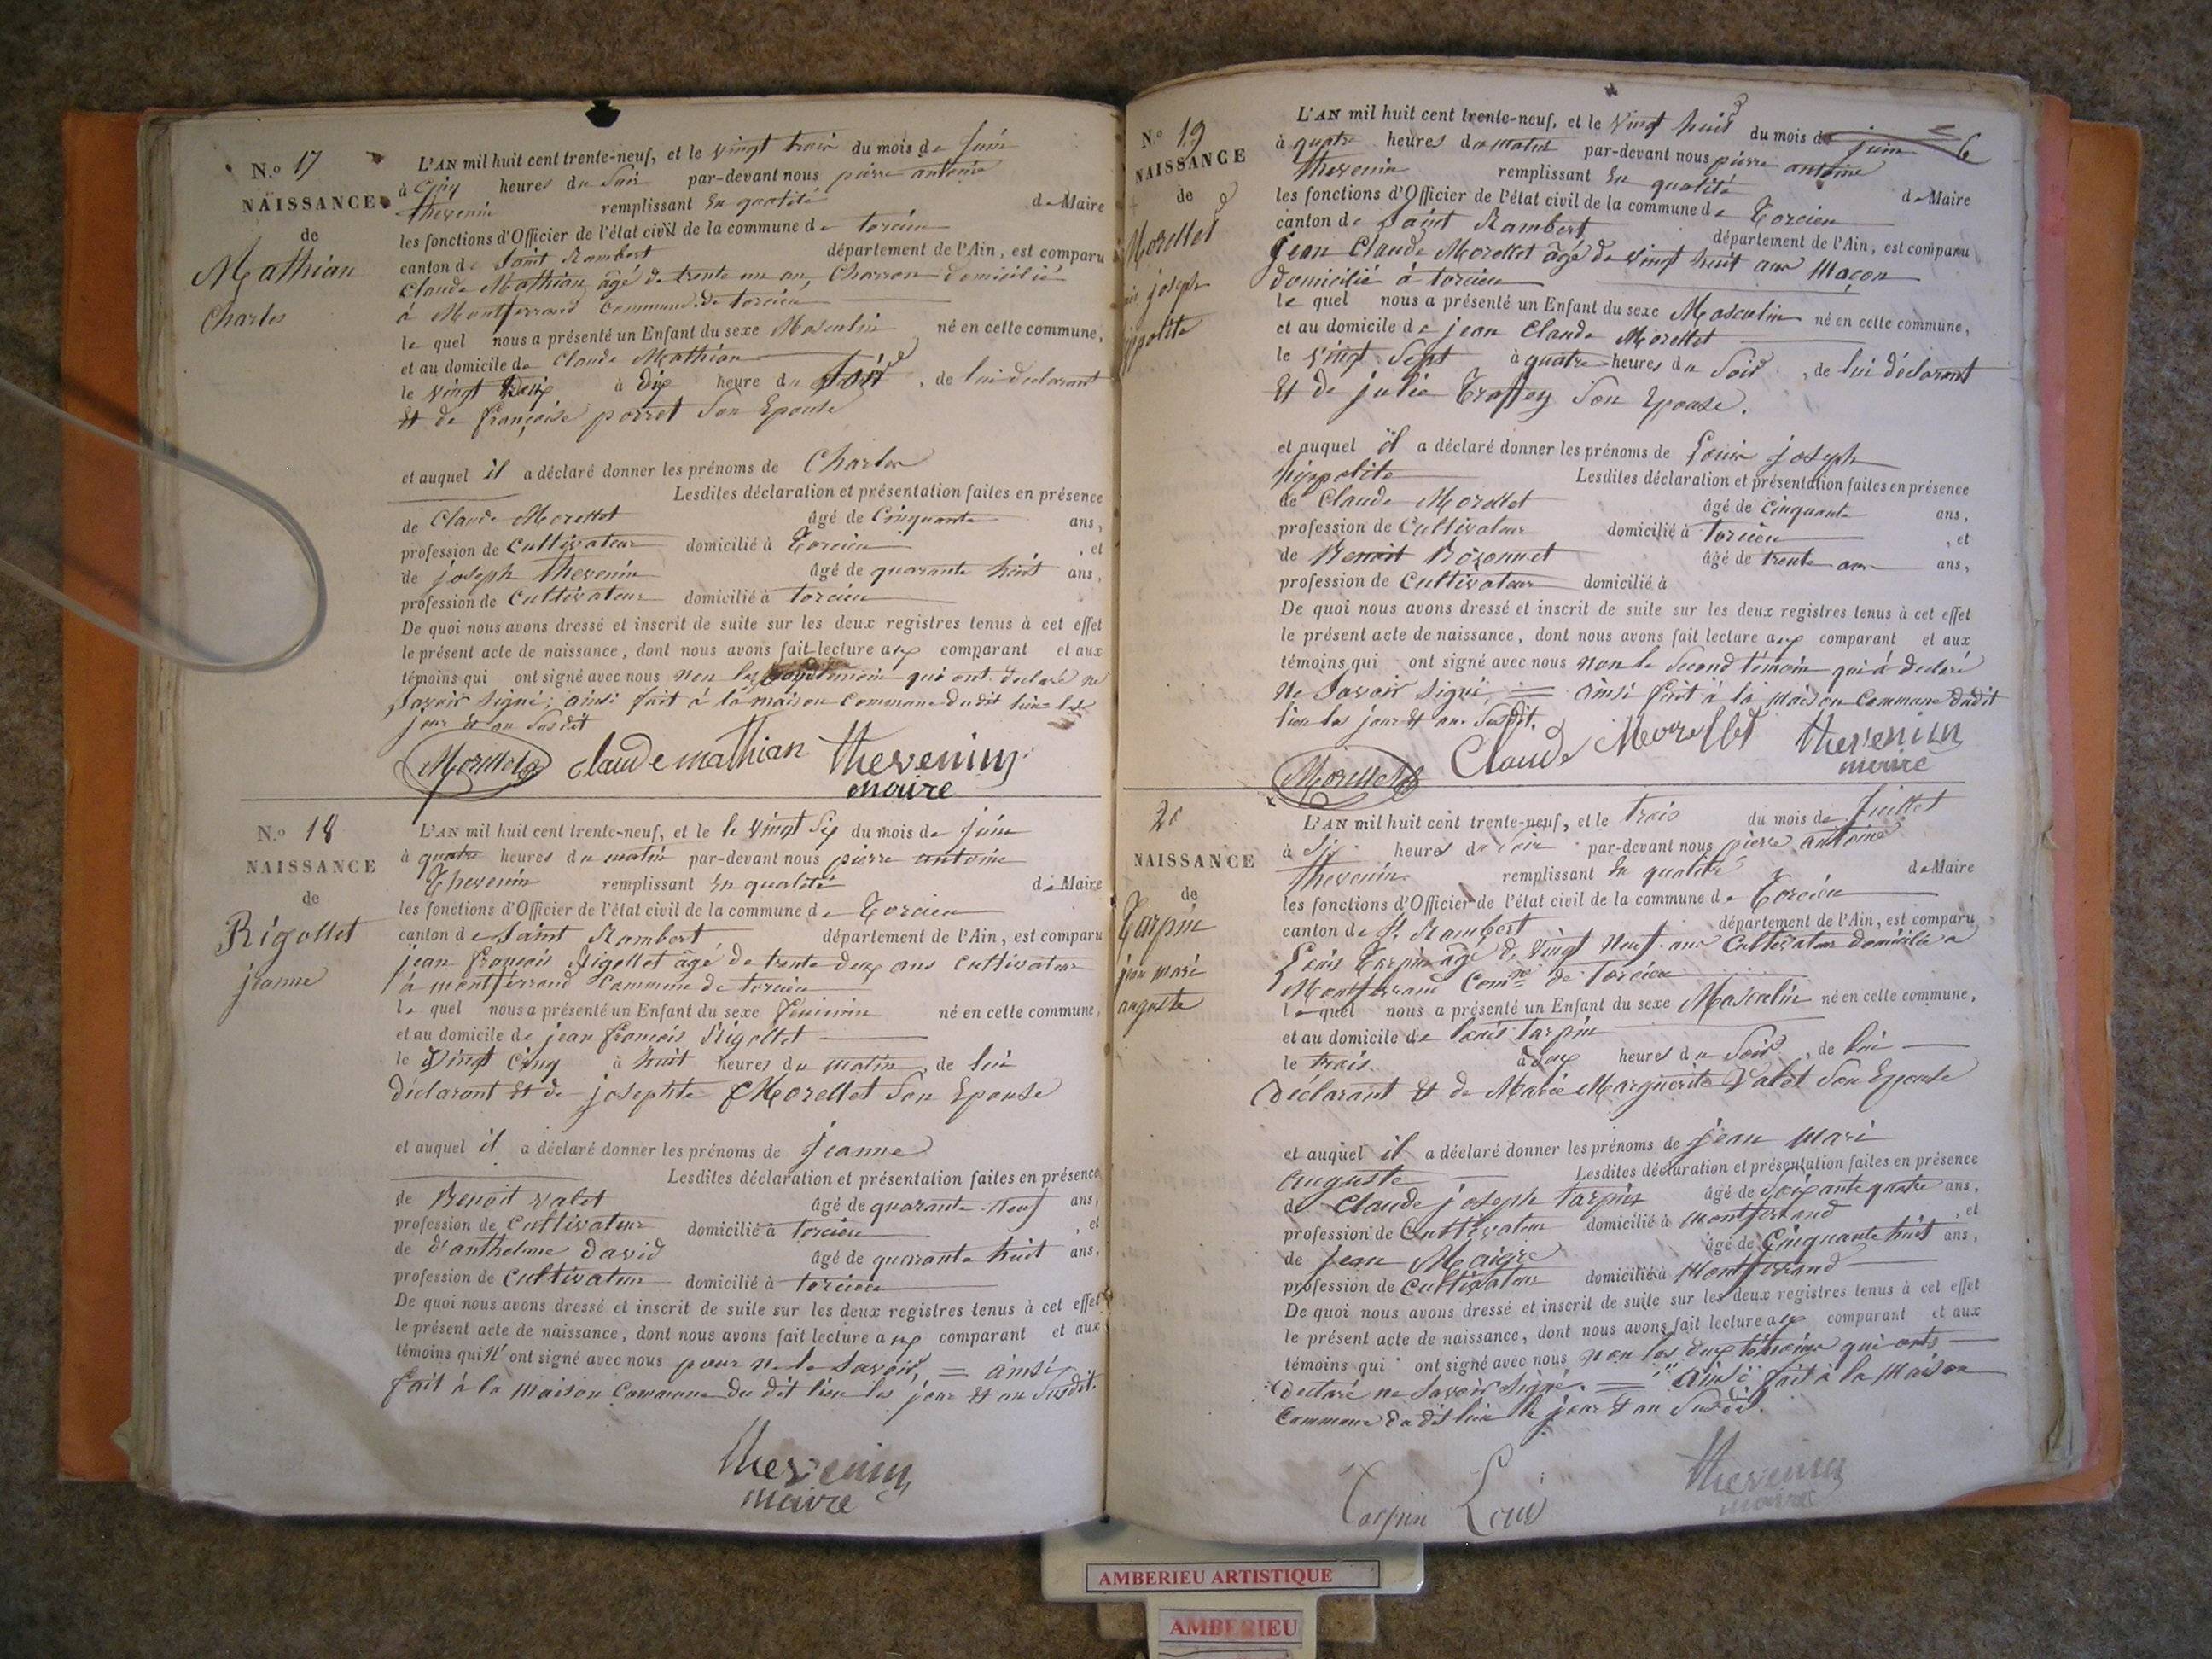 N.o 17
NAISSANCE
de
Mathian
Charles
L'AN mil huit cent trente-neuf, et le vingt trois du mois de Juin
à cinq heures du Soir par-devant nous pierre antoine
thevenin remplissant En qualité de Maire
les fonctions d'Officier de l'état civil de la commune de torcieu
canton de Saint Rambert département de l'Ain, est comparu
Claude Mathian âgé de trente un an, Charron domicilié
à Montferrand Commune de torcieu
le quel nous a présenté un Enfant du sexe Masculin né en cette commune,
et au domicile de Claude Mathian
le vingt Deux à dix heure du Soir, de lui declarant
Et de françoise porret Son Epouse
et auquel il a déclaré donner les prénoms de Charles
Lesdites déclaration et présentation faites en présence
de Claude Morellet âgé de Cinquante ans,
profession de Cultivateur domicilié à Torcieu, et
de joseph thevenin âgé de quarante huit ans,
profession de Cultivateur domicilié à torcieu
De quoi nous avons dressé et inscrit de suite sur les deux registres tenus à cet effet
le présent acte de naissance, dont nous avons fait lecture aux comparant et aux
témoins qui ont signé avec nous non les qui ont declaré ne
Savoir signé; ainsi fait à la maison Commune du dit lieu les
jour Et an Susdit
Morellet Claude mathian thevenin
maire
N.o 18
NAISSANCE
de
Rigollet
jeanne
L'AN mil huit cent trente-neuf, et le le vingt Six du mois de juin
à quatre heures du matin par-devant nous pierre antoine
Thevenin remplissant En qualité de Maire
les fonctions d'Officier de l'état civil de la commune de Torcieu
canton de Saint Rambert département de l'Ain, est comparu
jean françois Rigollet âgé de trente deux ans Cultivateur
à montferrand Commune de torcieu
le quel nous a présenté un Enfant du sexe feminin né en cette commune,
et au domicile de jean françois Rigollet
le Vingt Cinq à huit heures du matin, de lui
déclarant Et de josephte Morellet Son Epouse
et auquel il a déclaré donner les prénoms de jeanne
Lesdites déclaration et présentation faites en présence
de Benoit valet âgé de quarante Neuf ans,
profession de Cultivateur domicilié à torcieu, et
de d'anthelme david âgé de quarante huit ans,
profession de Cultivateur domicilié à torcieu
De quoi nous avons dressé et inscrit de suite sur les deux registres tenus à cet effet
le présent acte de naissance, dont nous avons fait lecture aux comparant et aux
témoins qui N' ont signé avec nous pour ne le Savoir, = ainsi
fait à la Maison Commune du dit lieu les jour Et an Susdit.
thevenin
maire
N.o 19
NAISSANCE
de
Morellet
joseph
L'AN mil huit cent trente-neuf, et le vingt huit du mois de juin
à quatre heures du matin par-devant nous pierre antoine
thevenin remplissant En qualité de Maire
les fonctions d'Officier de l'état civil de la commune de Torcieu
canton de Saint Rambert département de l'Ain, est comparu
Jean Claude Morellet âgé de vingt huit ans Maçon
domicilié à torcieu
le quel nous a présenté un Enfant du sexe Masculin né en cette commune,
et au domicile de jean Claude Morellet
le vingt Sept à quatre heures du Soir, de lui déclarant
Et de julie Son Epouse.
et auquel il a déclaré donner les prénoms de Louis joseph
hippolite Lesdites déclaration et présentation faites en présence
de Claude Morellet âgé de Cinquante ans,
profession de Cultivateur domicilié à torcieu, et
de Benoit Rozonnet âgé de trente ans ans,
profession de Cultivateur domicilié à
De quoi nous avons dressé et inscrit de suite sur les deux registres tenus à cet effet
le présent acte de naissance, dont nous avons fait lecture aux comparant et aux
témoins qui ont signé avec nous non le Second témoin qui à declaré
Ne Savoir Signé; = ainsi fait à la maison Commune dudit
lieu les jour Et an Susdit.
Morellet Claude Morellet thevenin
maire
20
NAISSANCE
de
Tarpin
jean mari
auguste
L'AN mil huit cent trente-neuf, et le trois du mois de Juillet
à Six heures du Soir par-devant nous pierre antoine
thevenin remplissant En qualité de Maire
les fonctions d'Officier de l'état civil de la commune de Torcieu
canton de St Rambert département de l'Ain, est comparu
Louis Tarpin âgé de vingt Neuf ans Cultivateur domicilié a
Montferrand Com.ne de Torcieu
le quel nous a présenté un Enfant du sexe Masculin né en cette commune,
et au domicile de louis tarpin
le trois à deux heures du Soir, de lui
Déclarant Et de Marie Marguerite Valet Son Epouse
et auquel il a déclaré donner les prénoms de jean mari
Auguste Lesdites déclaration et présentation faites en présence
de Claude joseph tarpin âgé de Soixante quatre ans,
profession de Cultivateur domicilié à Montferrand, et
de Jean Maigre âgé de Cinquante huit ans,
profession de Cultivateur domicilié à Montferrand
De quoi nous avons dressé et inscrit de suite sur les deux registres tenus à cet effet
le présent acte de naissance, dont nous avons fait lecture aux comparant et aux
témoins qui ont signé avec nous non les deux témoins qui onts
Declaré ne Savoir Signé. = ainsi fait à la Maison
Commune du dit lieu le jour Et an Susdit.
Tarpin Louis thevenin
maire
AMBERIEU ARTISTIQUE
AMBERIEU